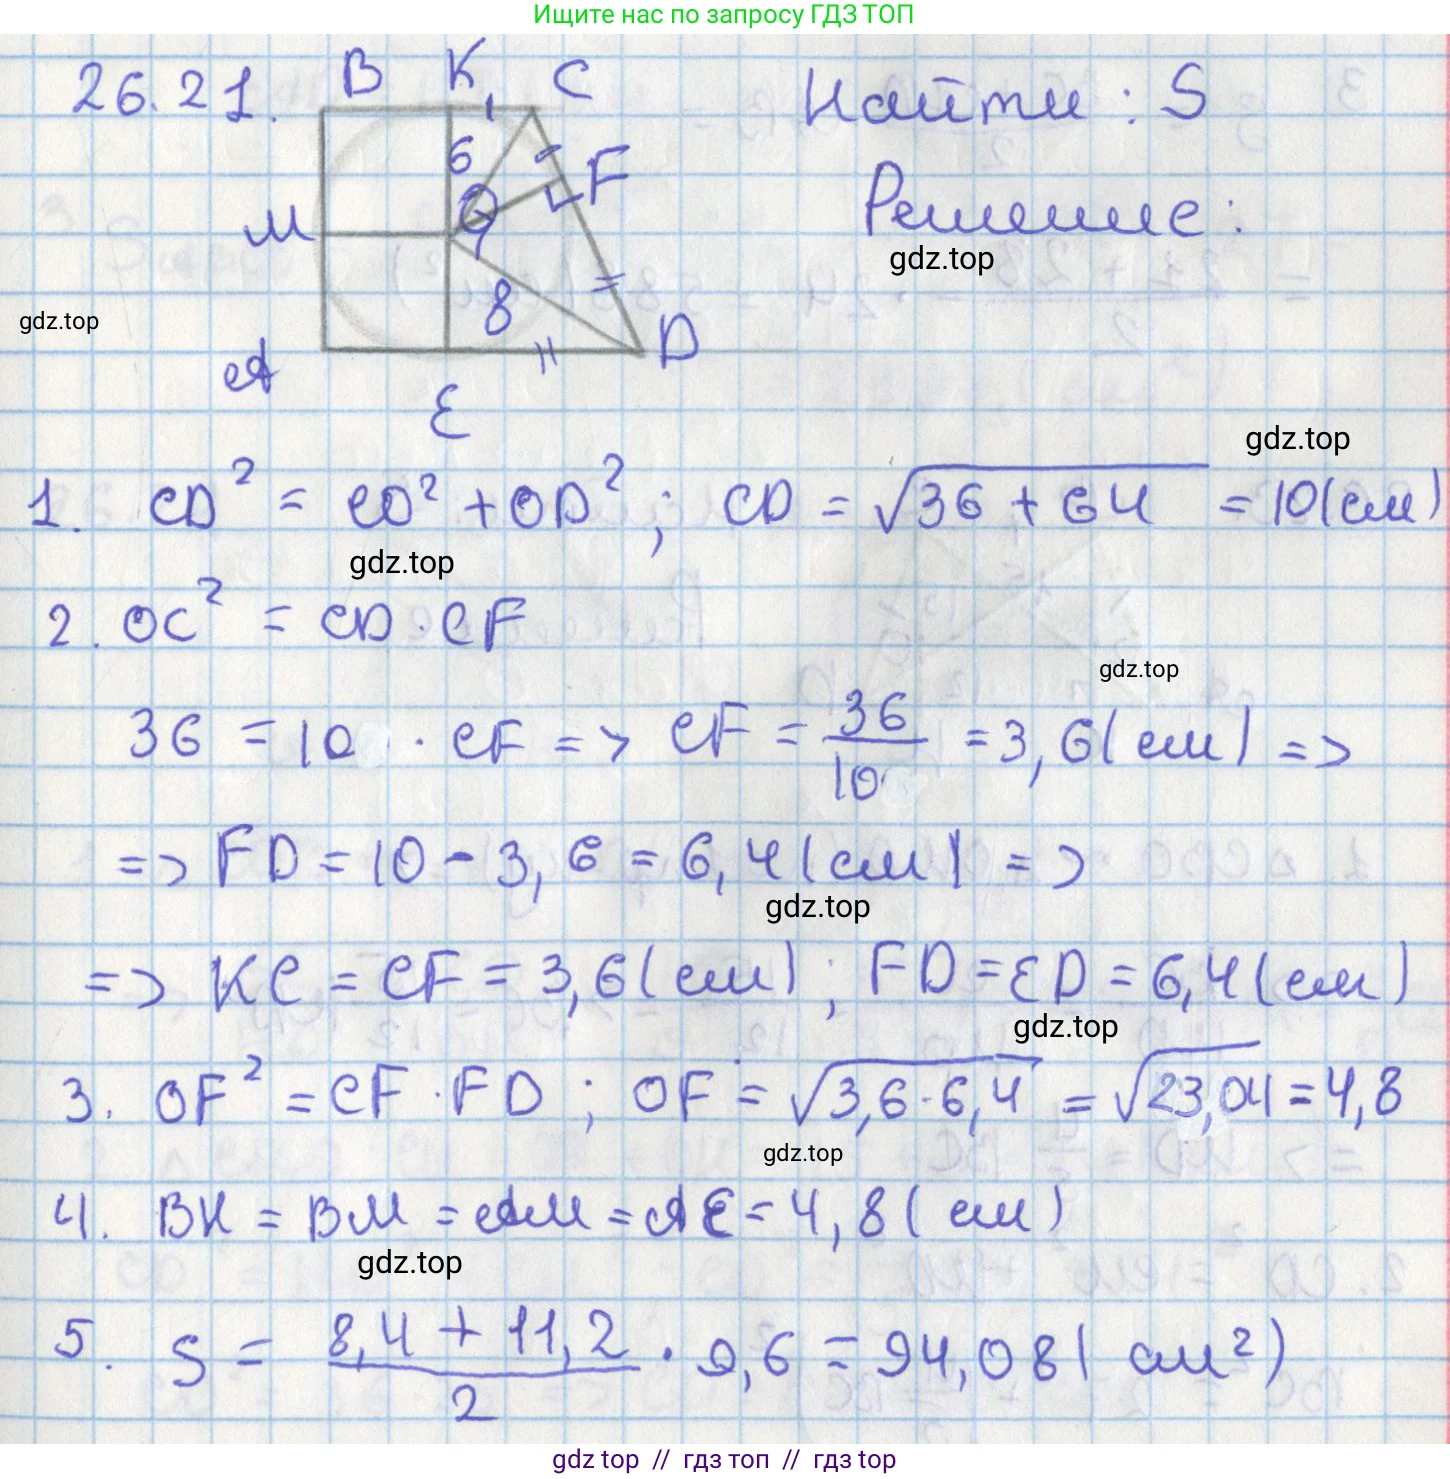 Ищите нас по запросу ГДЗ ТОП
26.21. B K C Найти : S
6 F
O
M Решение :
gdz.top
gdz.top
8 D
A
E
gdz.top
1. CD² = CO² + OD² ; CD = √36 + 64 = 10 (см)
gdz.top
2. OC² = CD · CF
gdz.top
36 = 10 · CF => CF = 36/10 = 3,6 (см) =>
=> FD = 10 - 3,6 = 6,4 (см) =>
gdz.top
=> KC = CF = 3,6 (см) ; FD = ED = 6,4 (см)
gdz.top
3. OF² = CF · FD ; OF = √3,6 · 6,4 = √23,04 = 4,8
gdz.top
4. BK = BM = AM = AE = 4,8 (см)
gdz.top
5. S = 8,4 + 11,2/2 · 9,6 = 94,08 (см²)
gdz.top // гдз топ // гдз.top